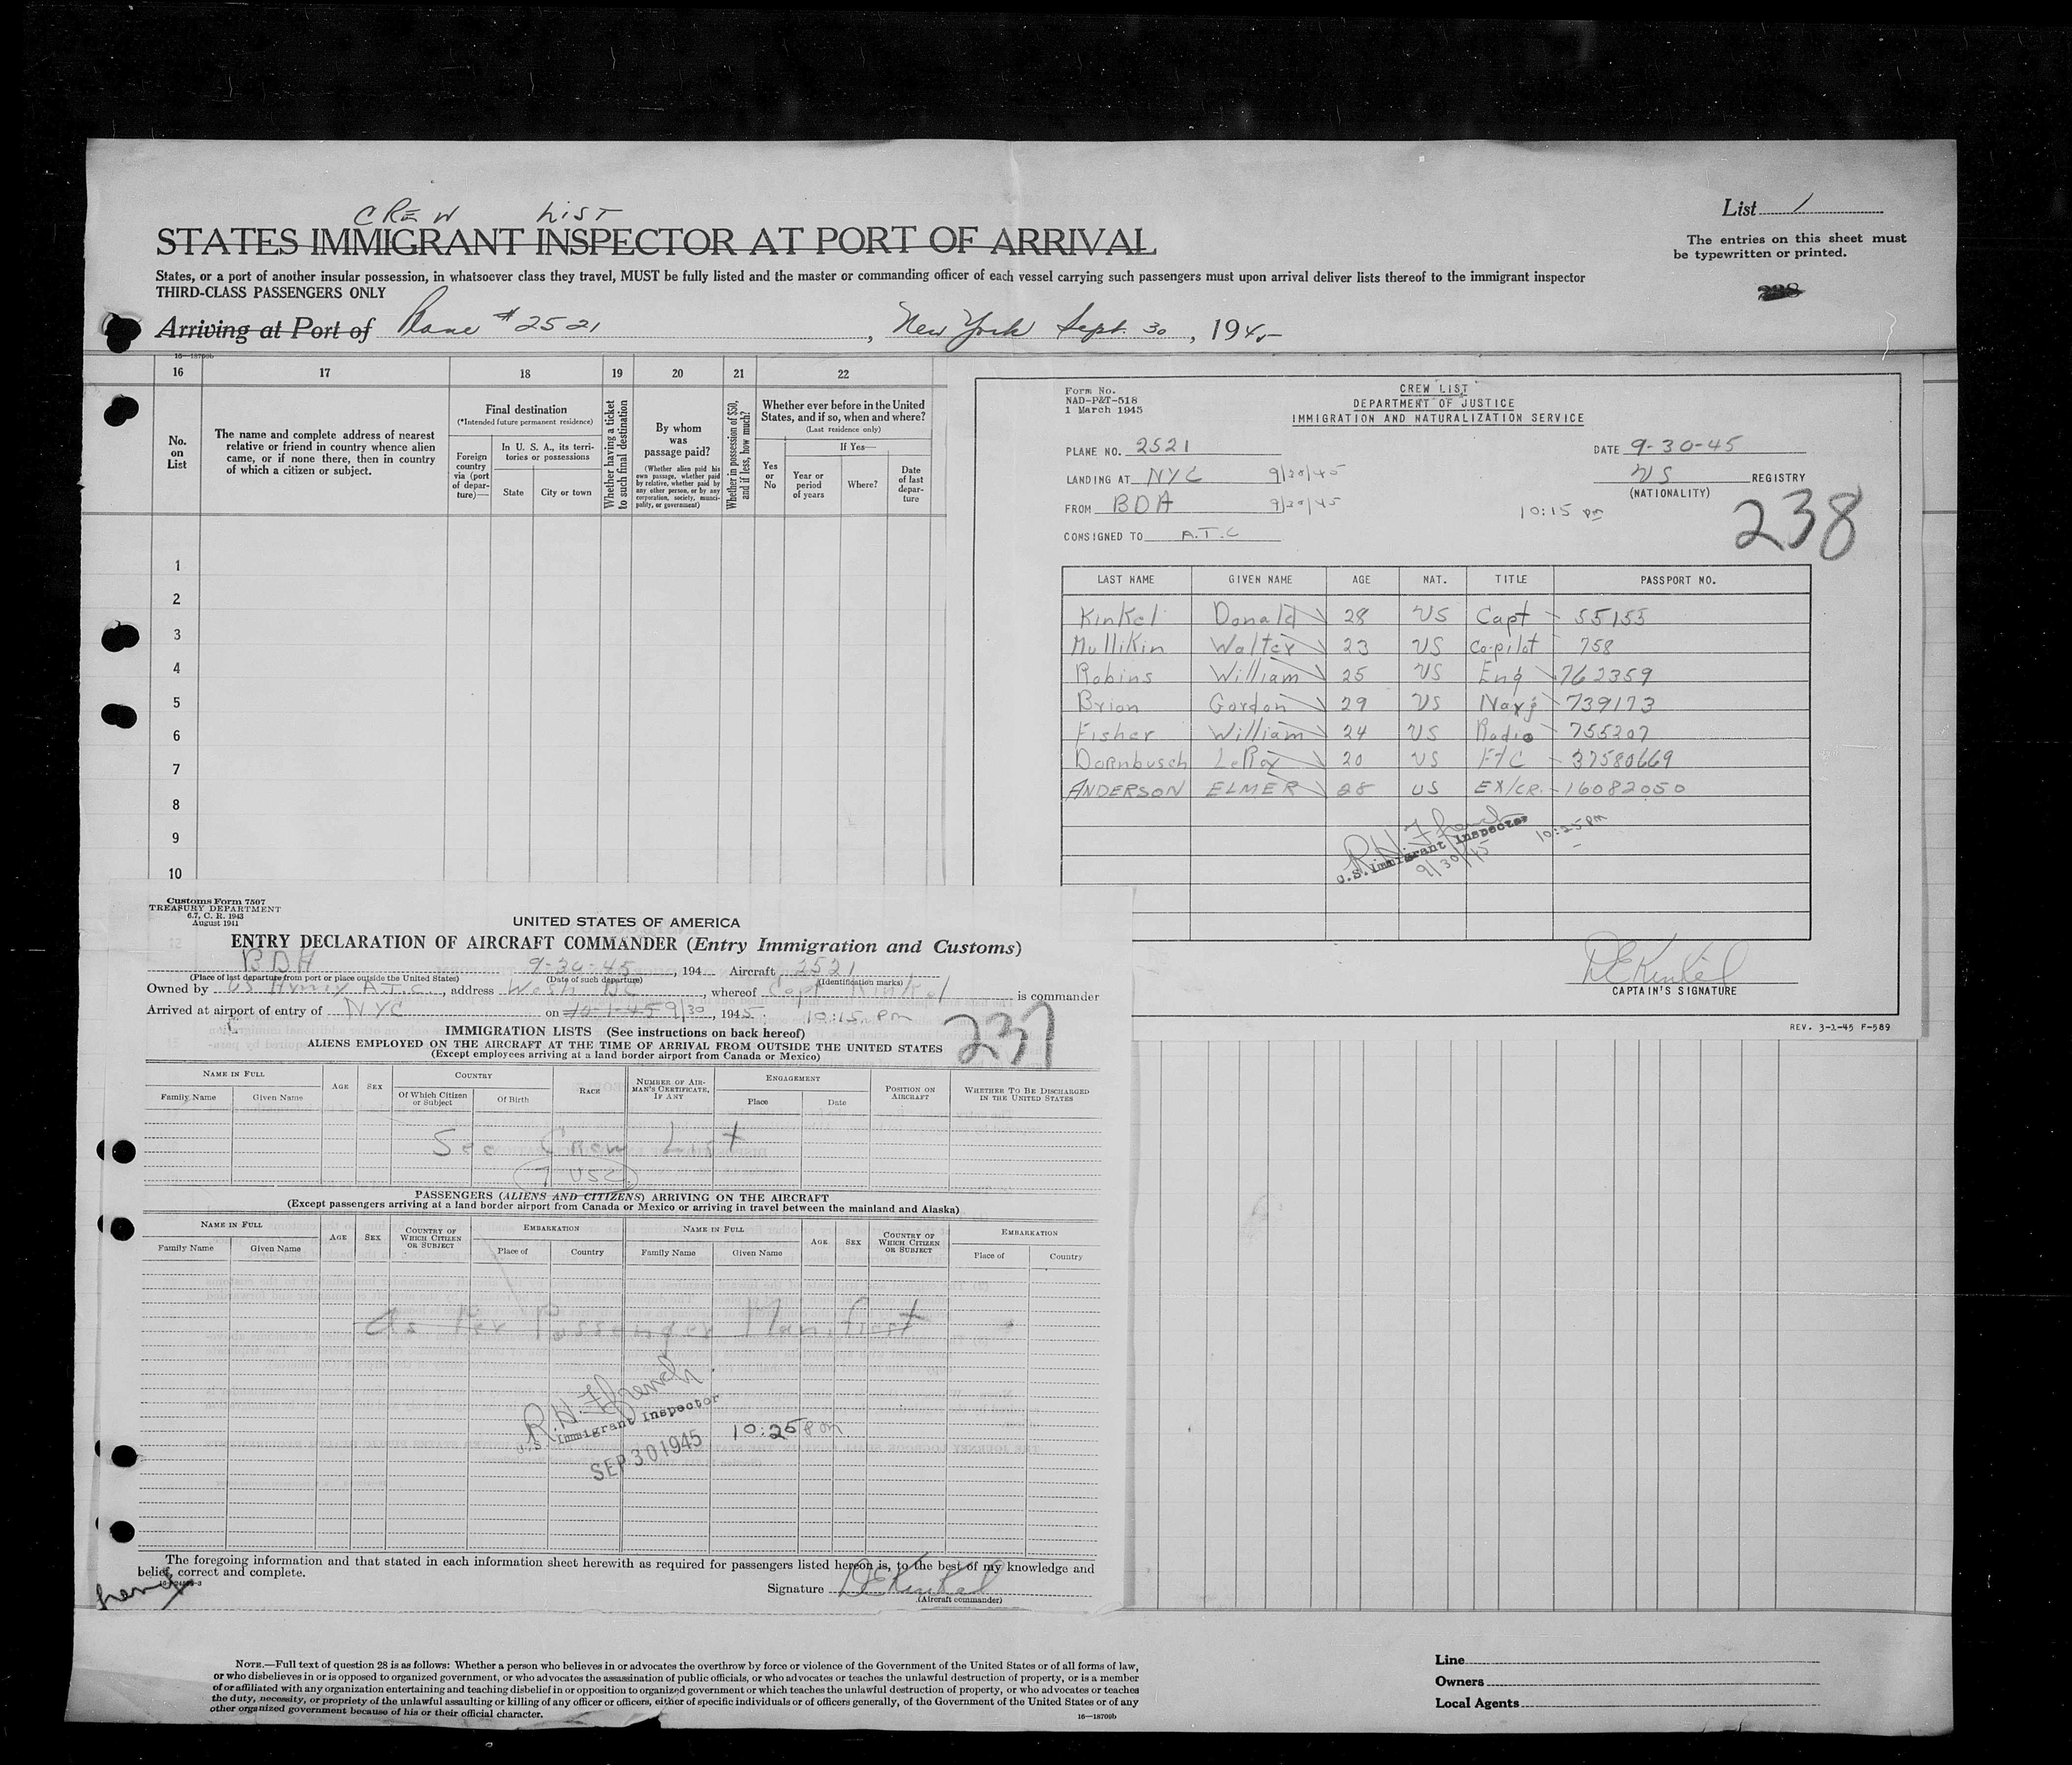 CREW LIST
List 1
STATES IMMIGRANT INSPECTOR AT PORT OF ARRIVAL
The entries on this sheet must
be typewritten or printed.
States, or a port of another insular possession, in whatsoever class they travel, MUST be fully listed and the master or commanding officer of each vessel carrying such passengers must upon arrival deliver lists thereof to the immigrant inspector
THIRD-CLASS PASSENGERS ONLY
Arriving at Port of Plane #2521, New York Sept. 30, 1945
16—18709b
16 17 18 19 20 21 22
No. on List
The name and complete address of nearest
relative or friend in country whence alien
came, or if none there, then in country
of which a citizen or subject.
Final destination
(*Intended future permanent residence)
Foreign country via (port of departure)—
In U. S. A., its territories or possessions
State City or town
Whether having a ticket to such final destination
By whom was passage paid?
(Whether alien paid his own passage, whether paid by relative, whether paid by any other person, or by any corporation, society, municipality, or government)
Whether in possession of $50, and if less, how much?
Whether ever before in the United
States, and if so, when and where?
(Last residence only)
Yes or No
If Yes—
Year or period of years
Where?
Date of last departure
1
2
3
4
5
6
7
8
9
10
Form No.
NAD-P&T-518
1 March 1945
CREW LIST
DEPARTMENT OF JUSTICE
IMMIGRATION AND NATURALIZATION SERVICE
PLANE NO. 2521 DATE 9-30-45
LANDING AT NYC 9/30/45 US REGISTRY
(NATIONALITY)
FROM BDA 9/30/45 10:15 pm
238
CONSIGNED TO A.T.C
LAST NAME GIVEN NAME AGE NAT. TITLE PASSPORT NO.
Kinkel Donald 28 US Capt 55155
Mullikin Walter 23 US Co-pilot 758
Robins William 25 US Eng 762359
Brian Gordon 29 US Navg 739173
Fisher William 24 US Radio 755207
Dornbusch LeRoy 20 US F/C 37580669
ANDERSON ELMER 28 US EX/CR. 16082050
R.H. French
U.S. Immigrant Inspector
9/30/45
10:25 pm
DEKinkel
CAPTAIN'S SIGNATURE
REV. 3-1-45 F-589
Customs Form 7507
TREASURY DEPARTMENT
6.7, C. R. 1943
August 1941
UNITED STATES OF AMERICA
ENTRY DECLARATION OF AIRCRAFT COMMANDER (Entry Immigration and Customs)
BDA 9-30-45, 194 Aircraft 2521
(Place of last departure from port or place outside the United States) (Date of such departure) (Identification marks)
Owned by US Army A.T.C., address Wash DC, whereof Capt Kinkel is commander
Arrived at airport of entry of NYC on 10-1-45 9/30, 1945; 10:15 pm
237
IMMIGRATION LISTS (See instructions on back hereof)
ALIENS EMPLOYED ON THE AIRCRAFT AT THE TIME OF ARRIVAL FROM OUTSIDE THE UNITED STATES
(Except employees arriving at a land border airport from Canada or Mexico)
NAME IN FULL
Family Name Given Name
AGE SEX
COUNTRY
Of Which Citizen or Subject Of Birth
RACE
NUMBER OF AIRMAN'S CERTIFICATE, IF ANY
ENGAGEMENT
Place Date
POSITION ON AIRCRAFT
WHETHER TO BE DISCHARGED IN THE UNITED STATES
See Crew List
7 USC
PASSENGERS (ALIENS AND CITIZENS) ARRIVING ON THE AIRCRAFT
(Except passengers arriving at a land border airport from Canada or Mexico or arriving in travel between the mainland and Alaska)
NAME IN FULL AGE SEX COUNTRY OF WHICH CITIZEN OR SUBJECT EMBARKATION NAME IN FULL AGE SEX COUNTRY OF WHICH CITIZEN OR SUBJECT EMBARKATION
Family Name Given Name Place of Country Family Name Given Name Place of Country
As Per Passenger Manifest
R.H. French
U.S. Immigrant Inspector
SEP 30 1945
10:25 pm
The foregoing information and that stated in each information sheet herewith as required for passengers listed hereon is, to the best of my knowledge and
belief, correct and complete.
Signature DEKinkel
(Aircraft commander)
French
NOTE.—Full text of question 28 is as follows: Whether a person who believes in or advocates the overthrow by force or violence of the Government of the United States or of all forms of law,
or who disbelieves in or is opposed to organized government, or who advocates the assassination of public officials, or who advocates or teaches the unlawful destruction of property, or is a member
of or affiliated with any organization entertaining and teaching disbelief in or opposition to organized government or which teaches the unlawful destruction of property, or who advocates or teaches
the duty, necessity, or propriety of the unlawful assaulting or killing of any officer or officers, either of specific individuals or of officers generally, of the Government of the United States or of any
other organized government because of his or their official character.
16—18709b
Line
Owners
Local Agents